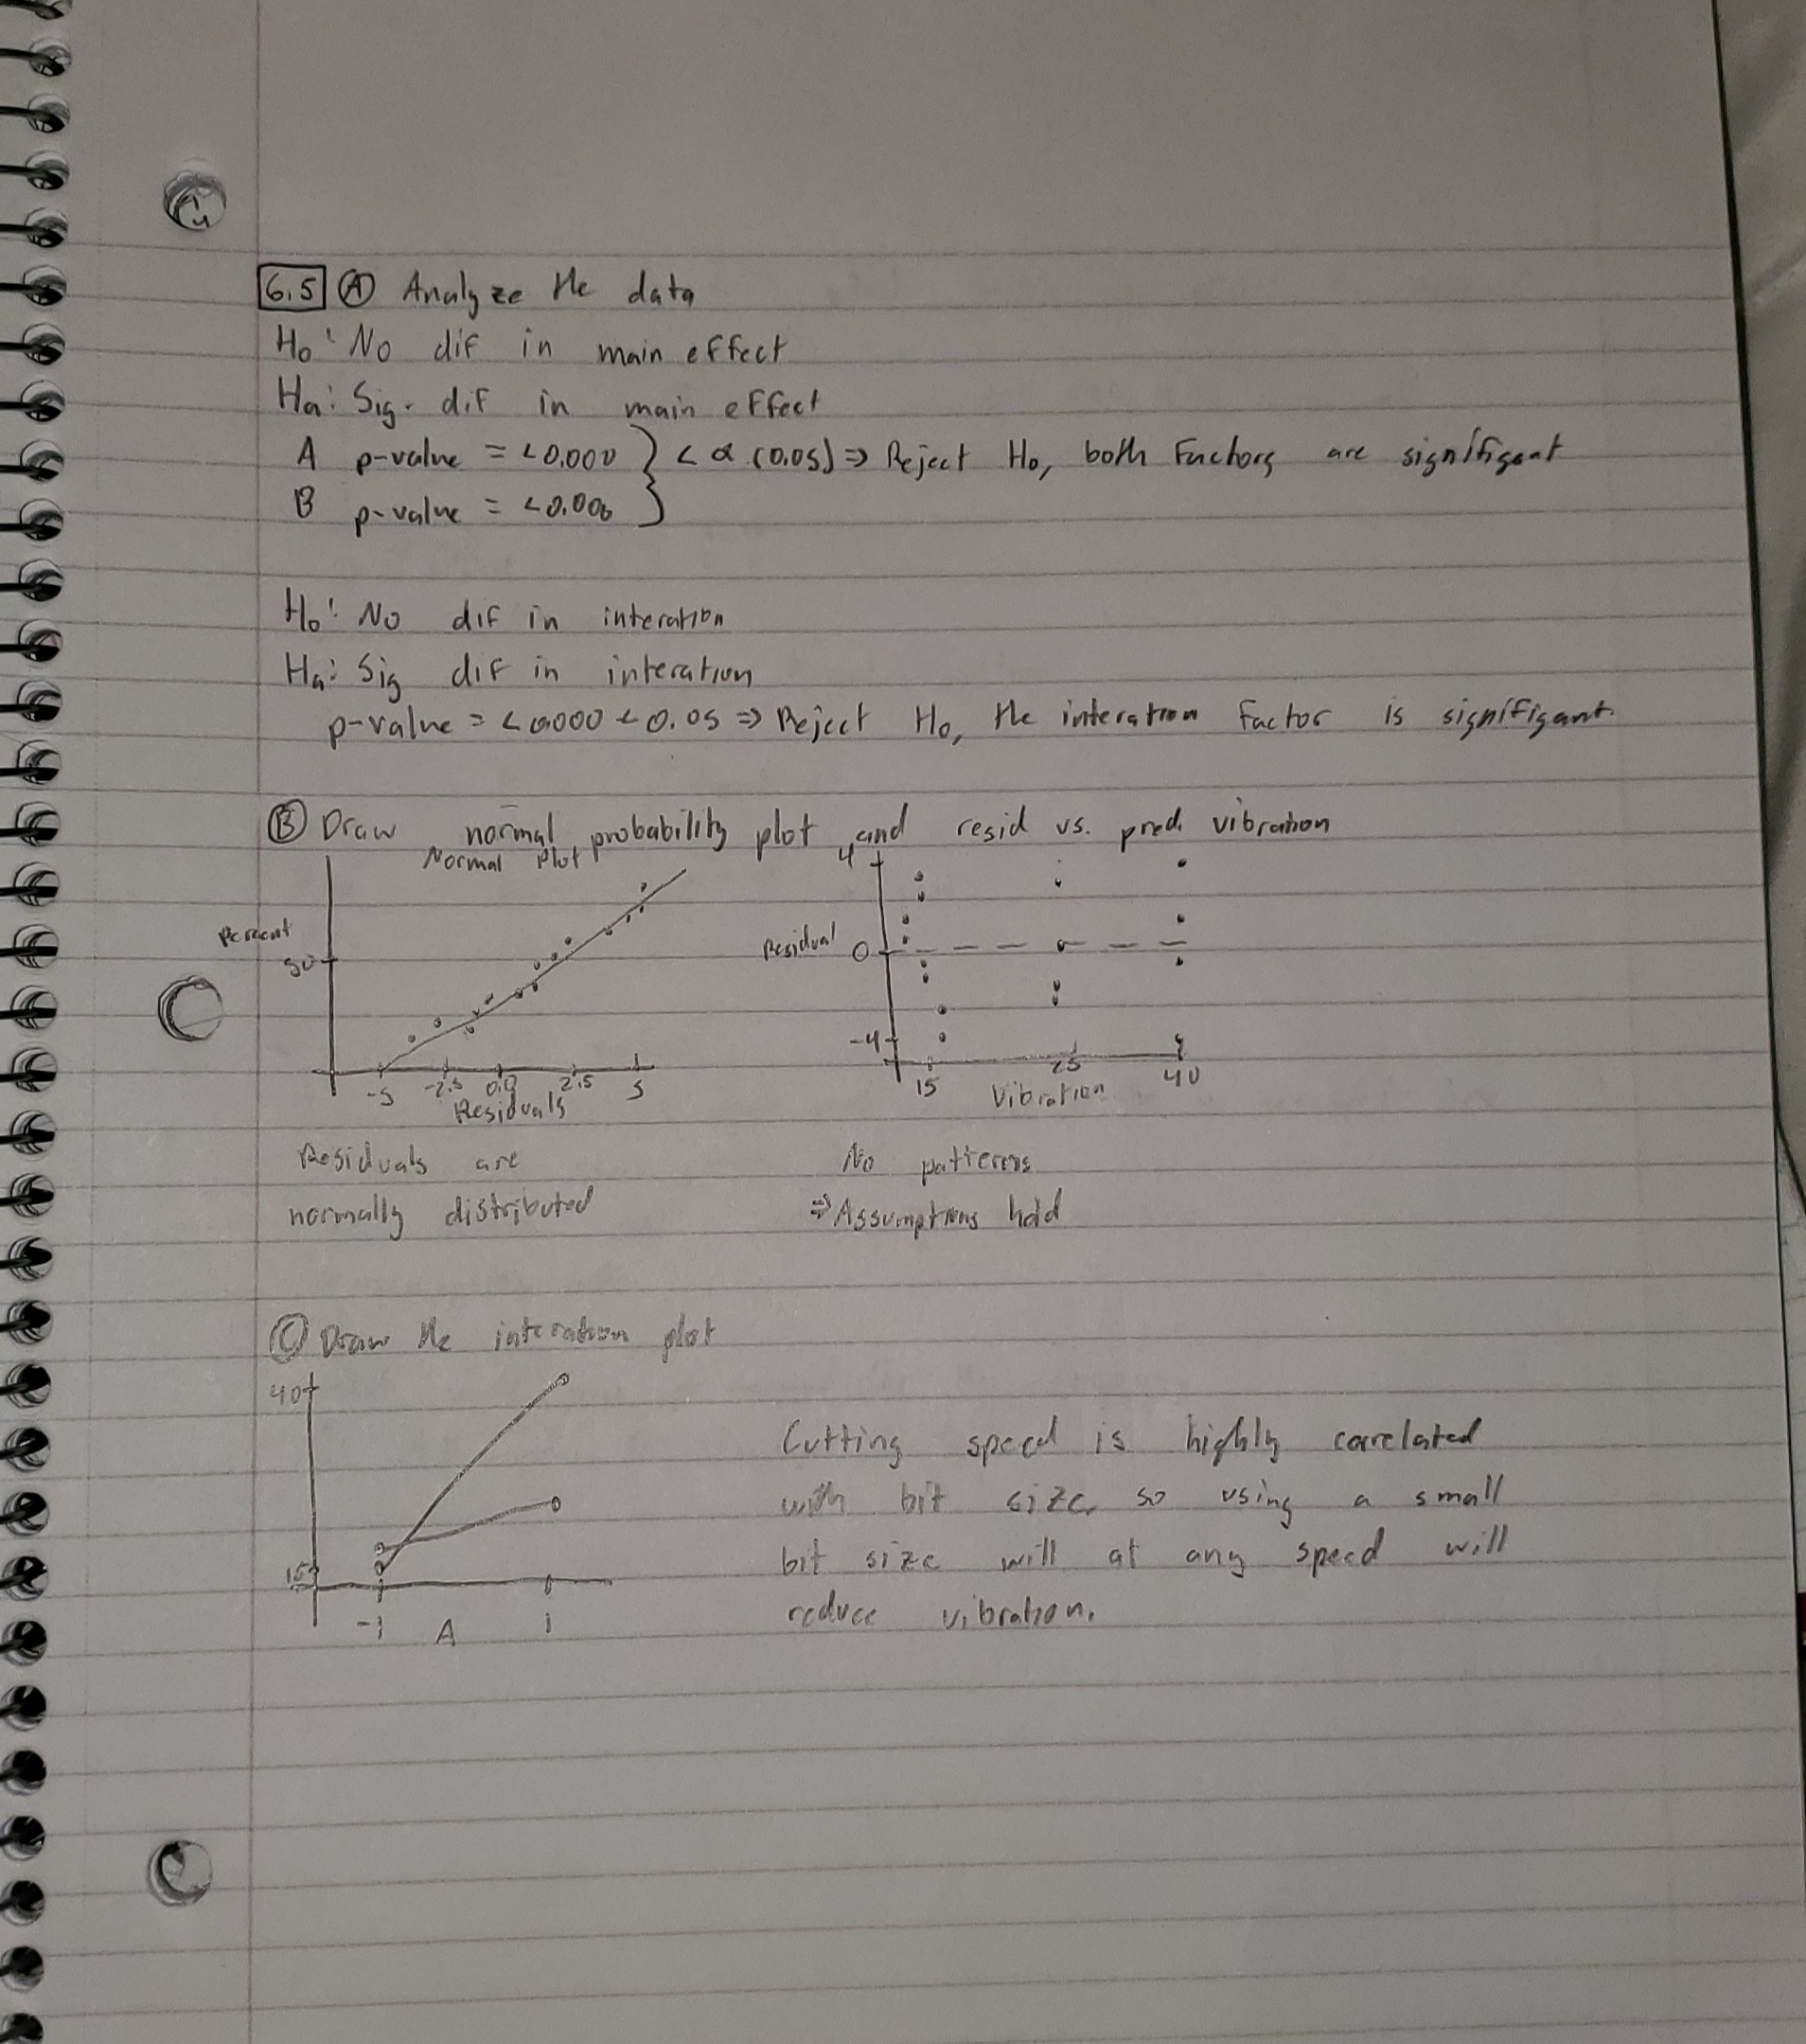 6.5 (A) Analyze the data
H₀: No dif in main effect
Ha: Sig. dif in main effect
A p-value = <0.000 } < α (0.05) ⇒ Reject H₀, both factors are signifigant
B p-value = <0.000
H₀: No dif in interation
Ha: Sig dif in interation
p-value = <0.000 < 0.05 ⇒ Reject H₀, the interation factor is signifigant.
(B) Draw normal probability plot and resid vs. pred. vibration
Normal Plot
Percent
50
-5 -2.5 0.0 2.5 5
Residuals
4
Residual 0
-4
15 25 40
Vibration
Residuals are
normally distributed
No patterns
⇒ Assumptions hold
(C) Draw the interation plot
40
15
-1 A 1
Cutting speed is highly correlated
with bit size, so using a small
bit size will at any speed will
reduce vibration.